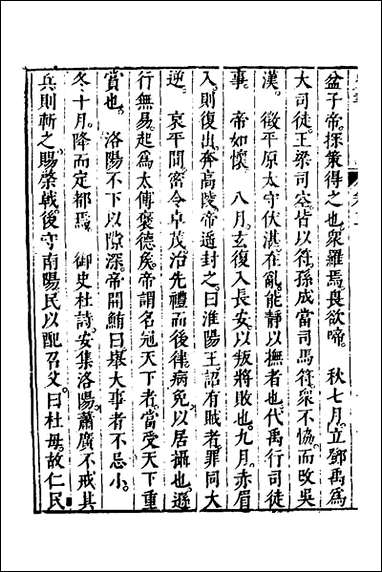 盆子帝探策得之也衆羅焉畏欲啼　秋七月立鄧禹爲
大司徒王梁司空皆以符孫成當司馬符衆不恊而改吳
漢　徵平原太守伏湛在亂能靜以撫者也代禹行司徒
事　帝如懷　八月玄復入長安以叛將敗也九月赤眉
入則復出奔高陵帝遥封之曰淮陽王詔有賊者罪同大
逆　哀平間密令卓茂治先禮而後律病免以居攝也遜
行無易起爲太傅褒德矣帝謂名冠天下者當受天下重
賞也　洛陽不下以隙深帝開鮪曰舉大事者不忌小
冬十月降而定都焉　御史杜詩安集洛陽蕭廣不戒其
兵則斬之賜棨戟後守南陽民以配召父曰杜母故仁民